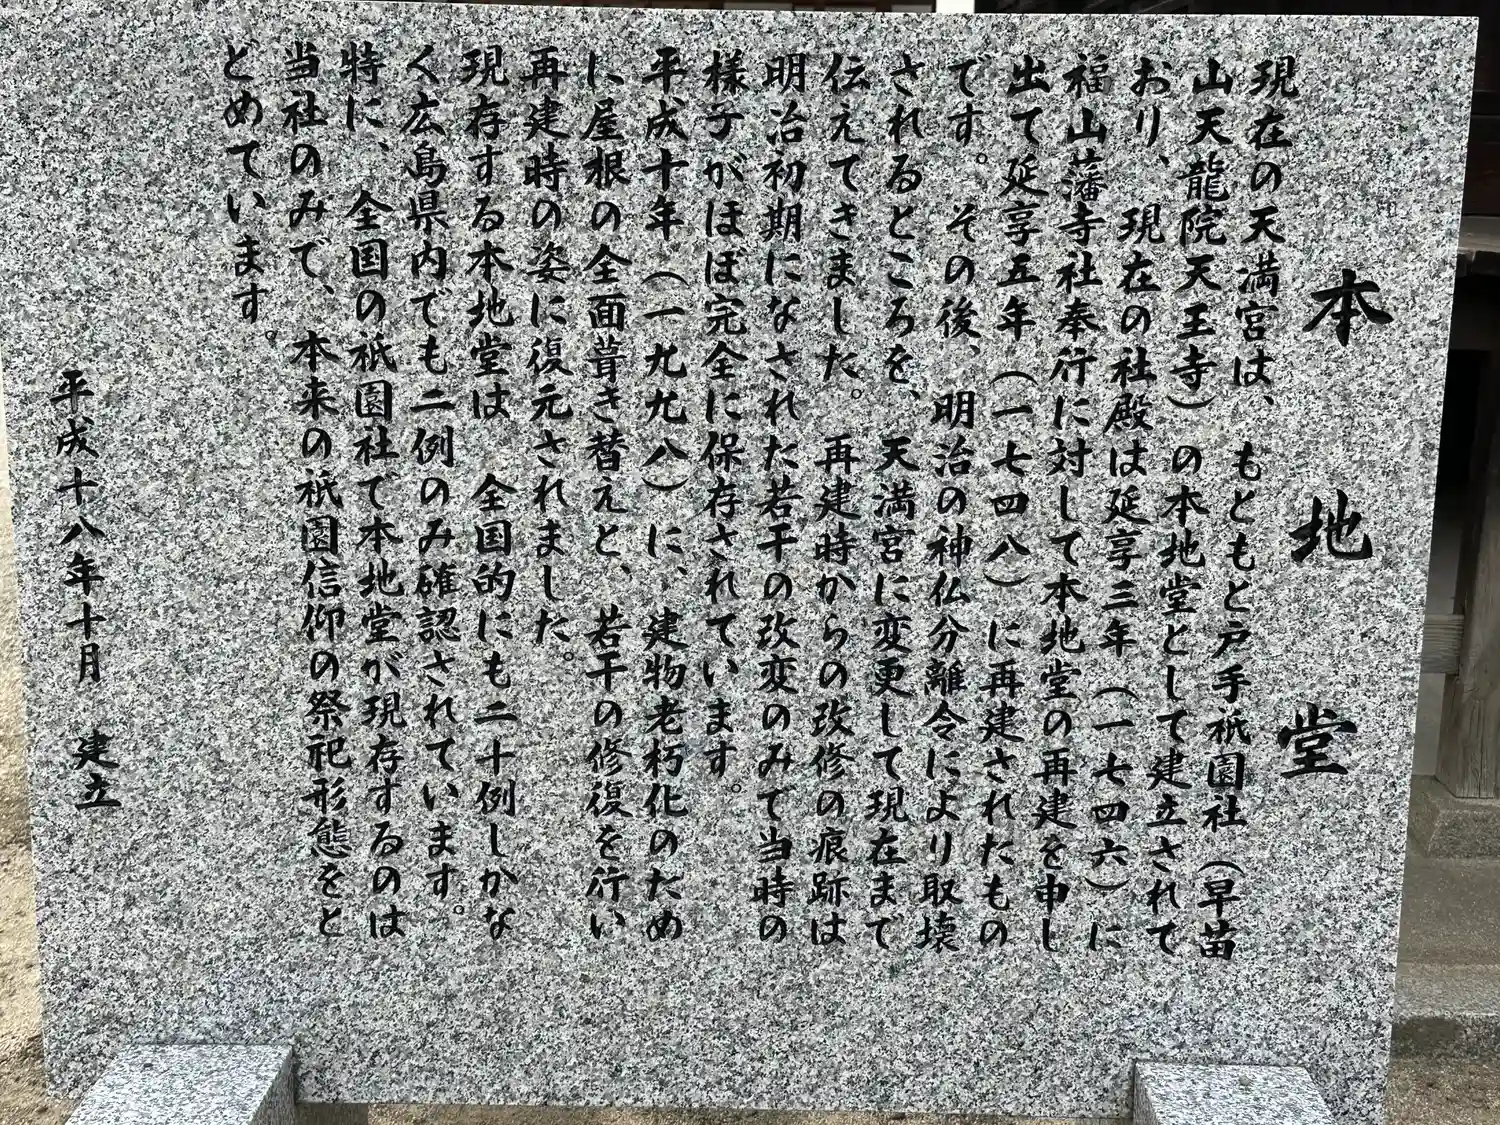 本地堂
現在の天満宮は、もともと戸手祇園社（早苗
山天龍院天王寺）の本地堂として建立されて
おり、現在の社殿は延享三年（一七四六）に
福山藩寺社奉行に対して本地堂の再建を申し
出て延享五年（一七四八）に再建されたもの
です。その後、明治の神仏分離令により取壊
されるところを、天満宮に変更して現在まで
伝えてきました。再建時からの改修の痕跡は
明治初期になされた若干の改変のみで当時の
様子がほぼ完全に保存されています。
平成十年（一九九八）に、建物老朽化のため
に屋根の全面葺き替えと、若干の修復を行い
再建時の姿に復元されました。
現存する本地堂は、全国的にも二十例しかな
く広島県内でも二例のみ確認されています。
特に、全国の祇園社で本地堂が現存するのは
当社のみで、本来の祇園信仰の祭祀形態をと
どめています。
平成十八年十月　建立